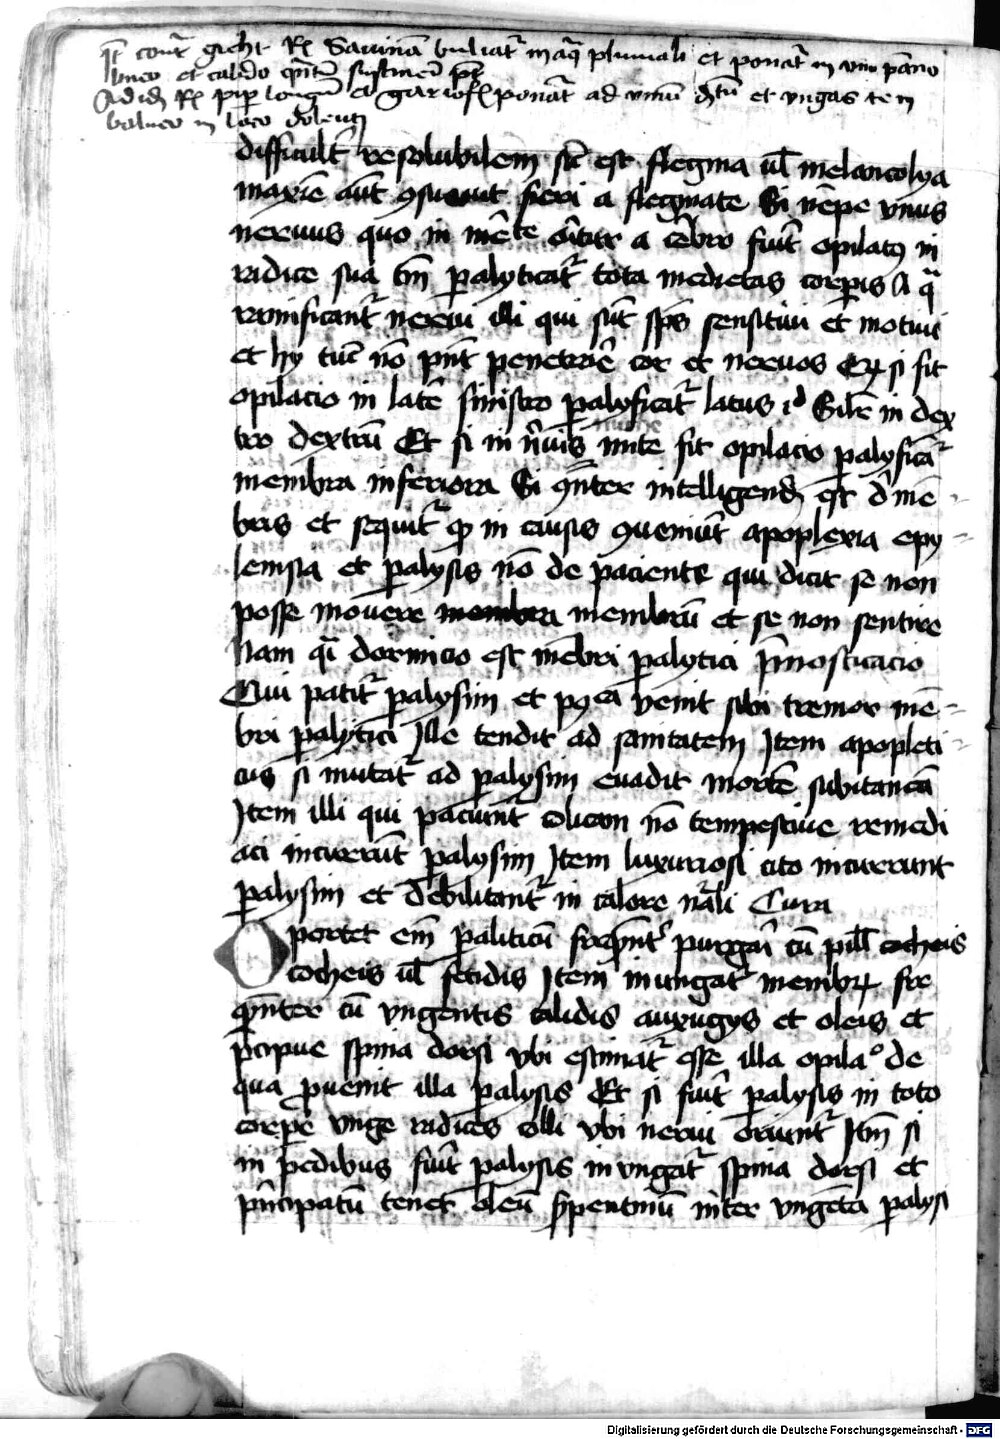 contra gicht Rx Savinam buliatur in aqua pluviali et ponatur in vino panno
lineo et calido
Ad id Rx piper longum et gariofl ponatur ad vinum et ungas
balneo in loco dolenti
difficulter resolubilem sic est flegma vel melancolya
maxime autem fieri a flegmate Si nempe unus
nervus quo in mente oritur a cerebro fuerit opilatus in
radice sua tunc paralyticatur tota medietas corporis A qua
ramificantur nervi illi qui sunt spiritus sensitivi et motivi
et hy tunc non possunt penetrare cor et nervos Et si sit
opilacio in latere sinistro palyficatur latus id Similiter in dex
tro dextrum Et si in nervis sit opilacio palyficantur
membra inferiora Si intelligendum est de mem
bris et sequitur quod in causis conveniunt apoplexia epy
lensia et palysis non de paciente qui dicit se non
posse movere membrum et se non sentire
Nam quia dormicio est membri palytici pronosticacio
Cui patitur palysim et postea venit sibi tremor mem
bri palytici Ille tendit ad sanitatem Item apopleti
cus si mutatur ad palysim evadit mortem subitaneam
Item illi qui paciuntur colicam non tempestive remedi
ati incurrunt palysim Item luxuriosi cito incurrunt
palysim et debilitantur in calore naturali Cura
Oportet enim paliticum frequenter purgari cum pillulis cocheis
cocheis vel fetidis Item inungatur membrum fre
quenter cum ungentis calidis auxugys et oleis et
precipue spina dorsi ubi estimatur esse illa opilatio de
qua provenit illa palysis Et si fuerit palysis in toto
corpore unge radices colli ubi nervi oriuntur Item si
in pedibus fuerit palysis inungatur spina dorsi et
principatum tenet oleum serpentinum inter ungenta palysi
Digitalisierung gefördert durch die Deutsche Forschungsgemeinschaft - DFG